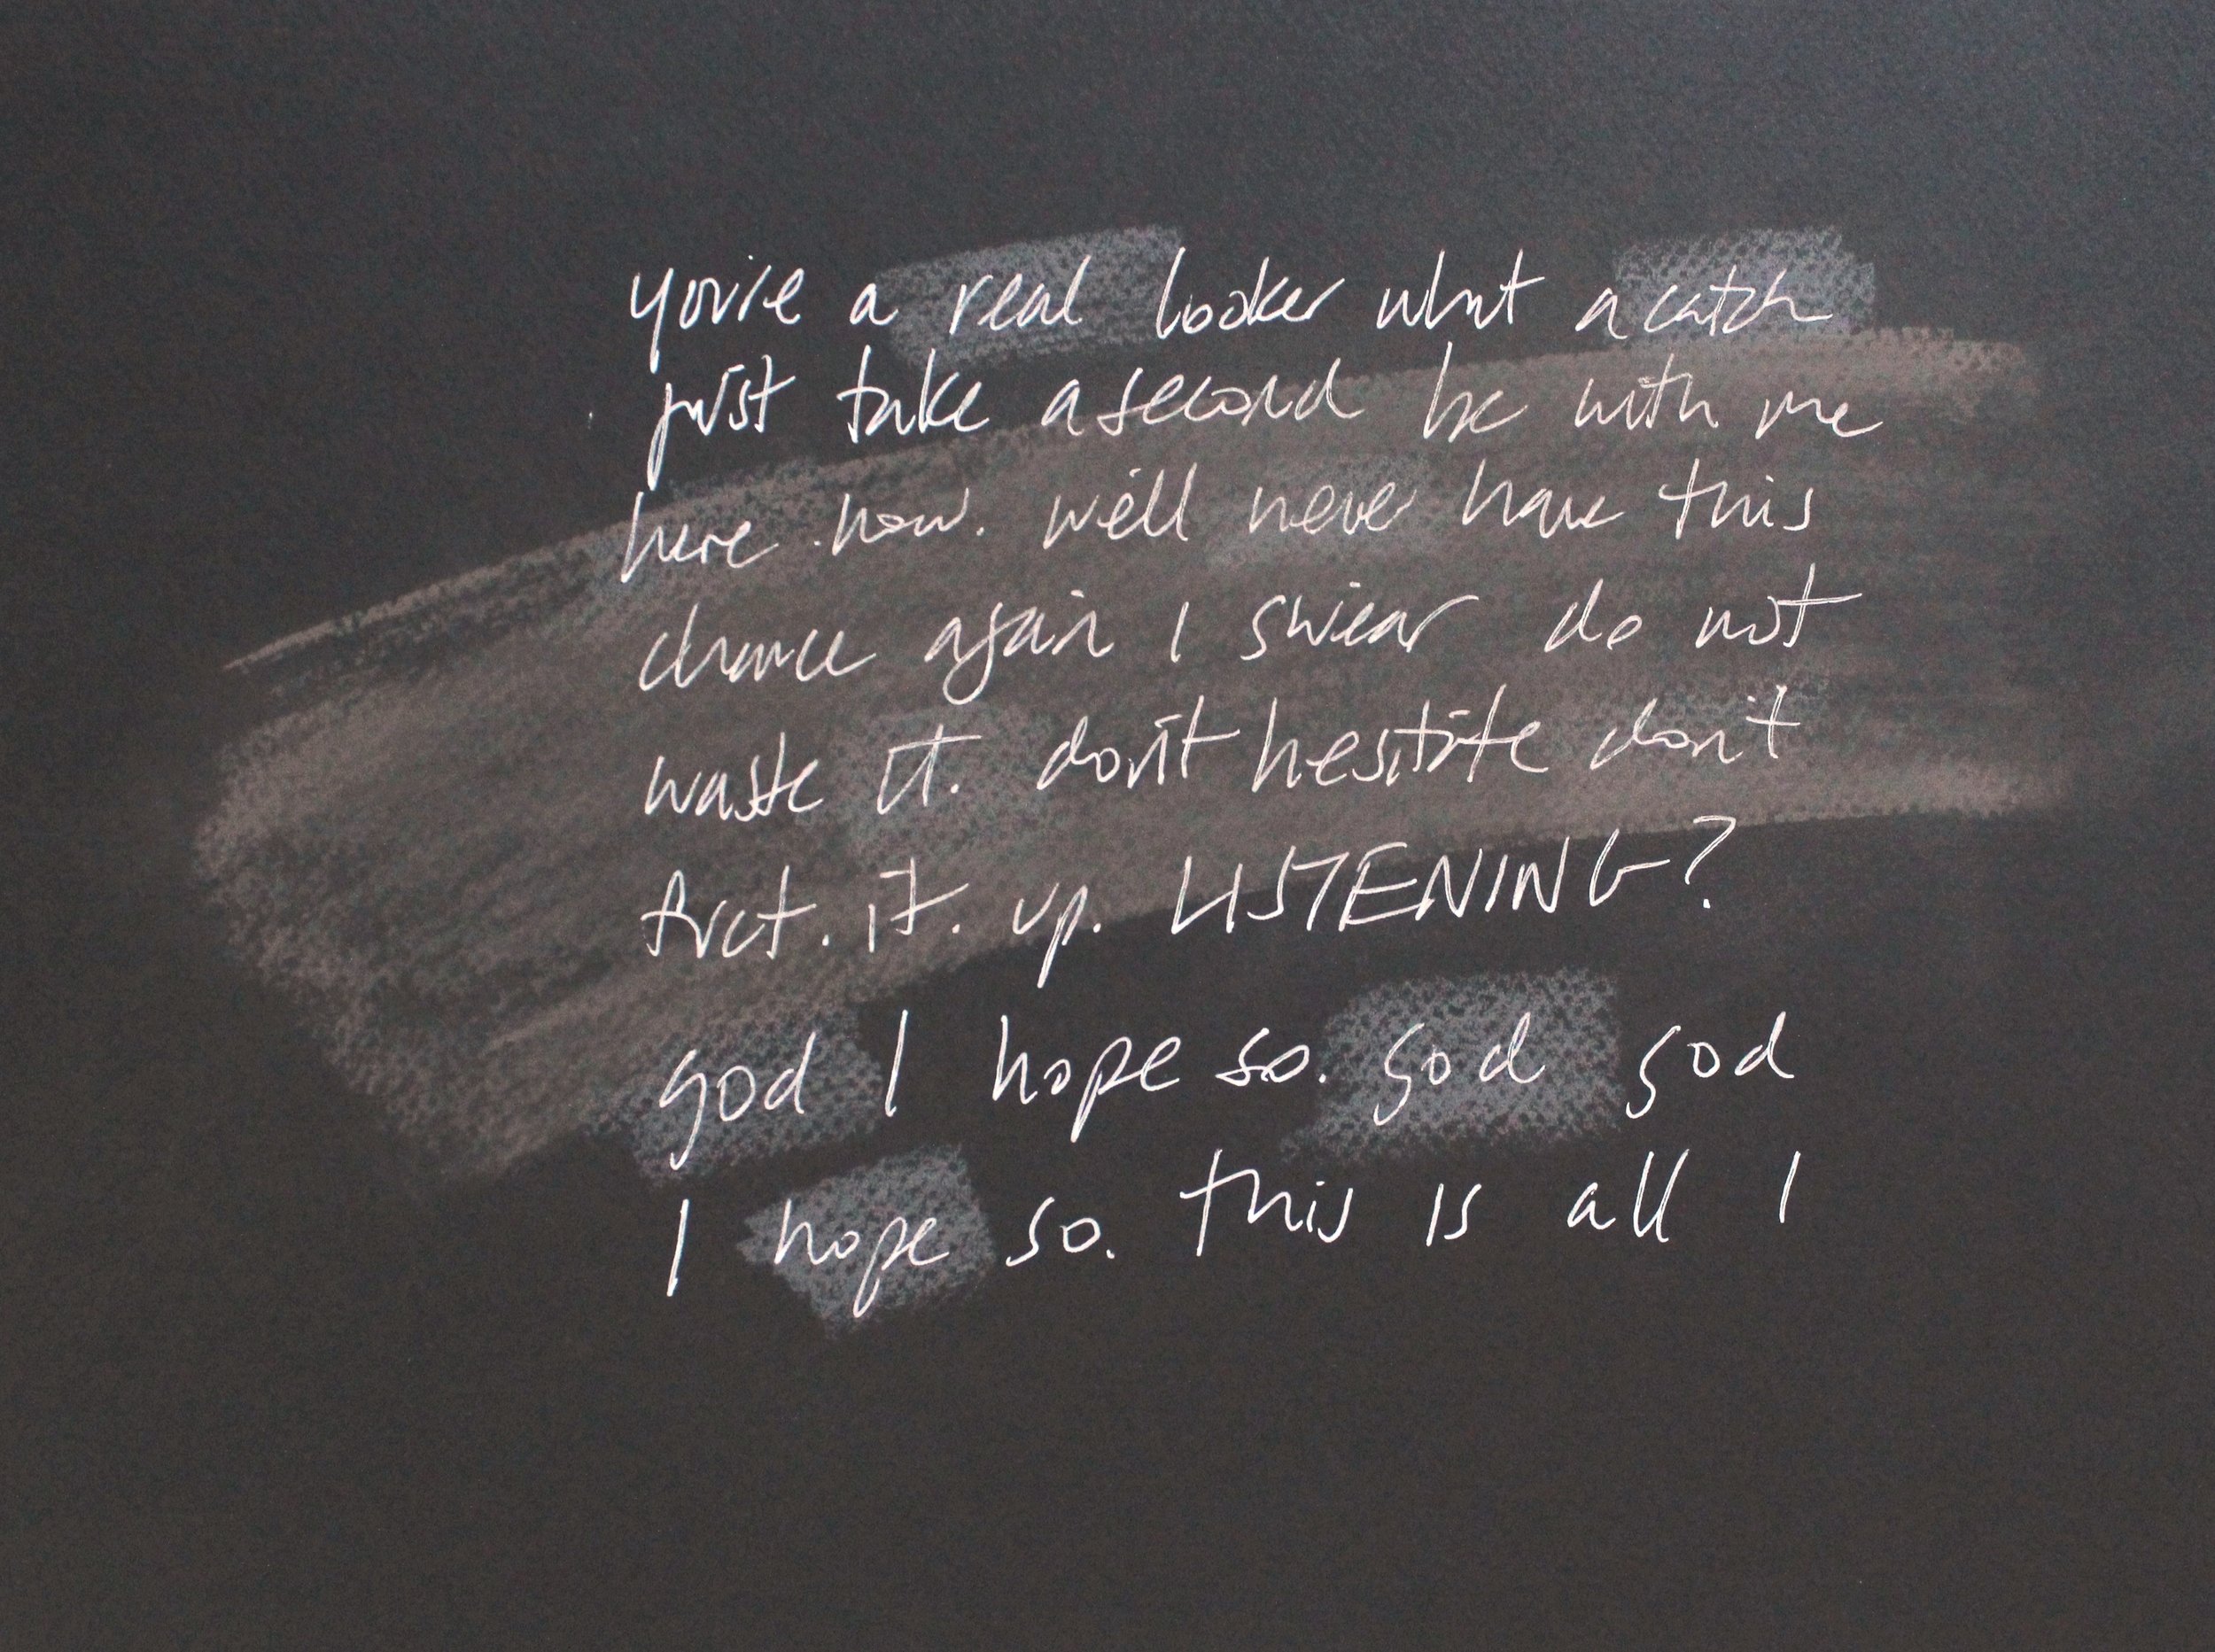 you're a real looker what a catch
just take a second be with me
here now. we'll never have this
chance again I swear do not
waste it. don't hesitate don't
fuck. it. up. LISTENING?
god I hope so. god god
I hope so. this is all I